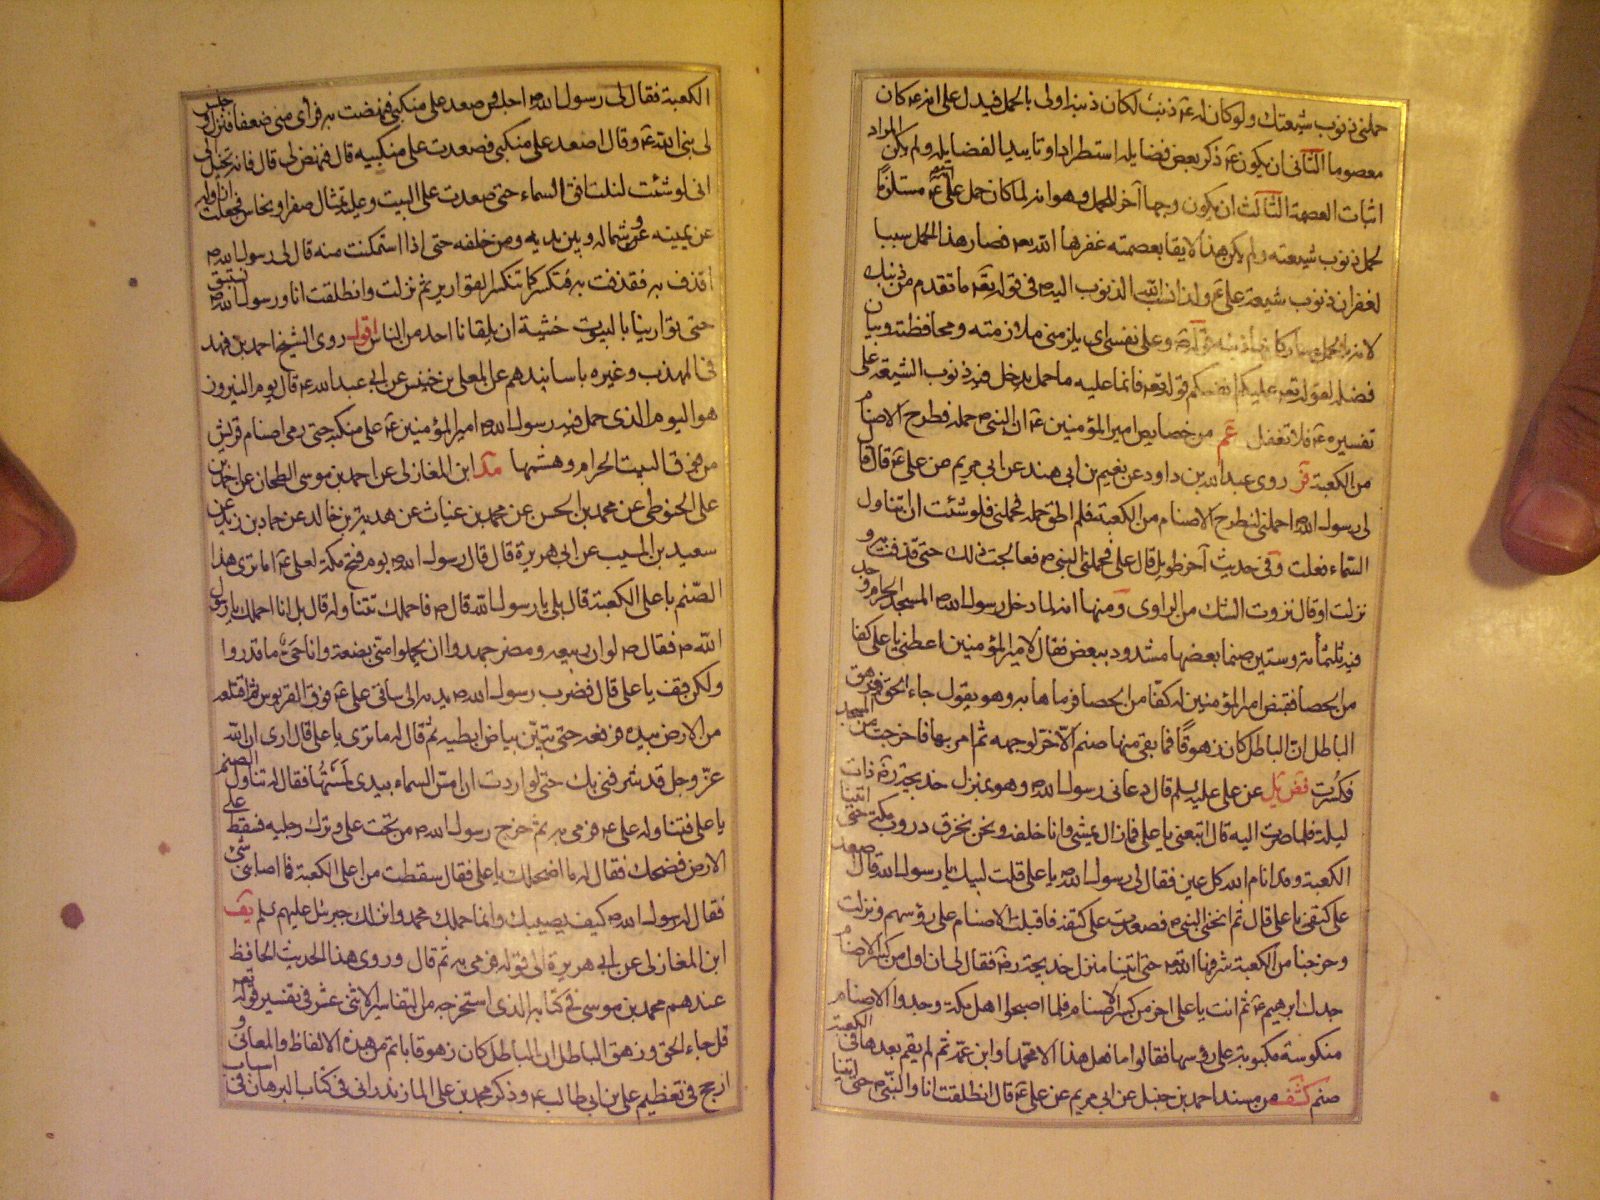 حملنى ذنوب شيعتك ولو كان له ع ذنب لكان ذنبه اولى بالحمل فيدل على انه ع كان
معصوما الثانى ان يكون ع ذكر بعض فضايله استطرادا وتاييدا لفضايله ولم يكن المراد
اثبات العصمة الثالث ان يكون وجها آخر للحمل وهو انه لما كان حمل على ع مستلزما
لحمل ذنوب شيعته ولم يكن هذا لايقا بعصمته غفرها الله فصار هذا الحمل سببا
لغفران ذنوب شيعة على ع ولذا نسب الله الذنوب اليه فى قوله ما تقدم من ذنبك
لانه بالحمل وعلى نفسى اى يلزمنى ملازمته ومحافظته وبيان
فضله لقوله عليكم انفسكم قوله فانما عليه ما حمل يدخل فيه ذنوب الشيعة على
تفسيره ع فلا تغفل عم من خصايص امير المؤمنين ع ان النبى ص حمله فطرح الاصنام
من الكعبة فر روى عبد الله بن داود عن نعيم بن ابى هند عن ابى مريم عن على ع قال قال
لى رسول الله ص احملنى لنطرح الاصنام من الكعبة فلم اطق حمله فحملنى فلو شئت ان اتناول
السماء فعلت وفى حديث آخر طويل قال على فحملنى النبى ص فعالجت ذلك حتى قذفت به و
نزلت او قال نزوت الشك من الراوى ومنها انه لما دخل رسول الله ص المسجد الحرام وجد
فيه ثلثمأة وستين صنما بعضها مشدود ببعض فقال لامير المؤمنين اعطنى يا على كفا
من الحصا فقبض امير المؤمنين له كفا من الحصا فرماها به وهو يقول جاء الحق وزهق
الباطل ان الباطل كان زهوقا فما بقى منها صنم الا خر لوجهه ثم امر بها فاخرجت من المسجد
فكسرت فض يل عن على عليه السلم قال دعانى رسول الله ص وهو بمنزل خديجة رض ذات
ليلة فلما صرت اليه قال اتبعنى يا على فما زال يمشى وانا خلفه ونحن نخرق دروب مكة حتى اتينا
الكعبة وقد انام الله كل عين فقال لى رسول الله ص يا على قلت لبيك يا رسول الله قال اصعد
على كتفى يا على قال ثم انحنى النبى ص فصعدت على كتفه فاقبلت الاصنام على رؤسهم ونزلت
وخرجنا من الكعبة شرفها الله حتى اتينا منزل خديجة رض فقال لى ان اول من كسر الاصنام
جدك ابرهيم ع ثم انت يا على اخر من كسر الاصنام فلما اصبحوا اهل مكة وجدوا الاصنام
منكوسة مكبوبة على رؤسها فقالوا ما فعل هذا الا محمد وابن عمه ثم لم يقم بعدها فى الكعبة
صنم كشف من مسند احمد بن حنبل عن ابى مريم عن على ع قال انطلقت انا والنبى ص حتى اتينا
الكعبة فقال لى رسول الله ص اجلس وصعد على منكبى فنهضت به فرأى منى ضعفا فنزل وجلس
لى نبى الله وقال اصعد على منكبى فصعدت على منكبيه قال فنهض بى قال فانه تخيل الى
انى لو شئت لنلت افق السماء حتى صعدت على البيت وعليه تمثال صفر او نحاس فجعلت ازاوله
عن يمينه وعن شماله وبين يديه ومن خلفه حتى اذا استمكنت منه قال لى رسول الله ص
اقذف به فقذفت به فتكسر كما تتكسر القوارير ثم نزلت وانطلقت انا ورسول الله ص نستبق
حتى توارينا بالبيوت خشية ان يلقانا احد من الناس اقول روى الشيخ احمد بن فهد
فى المهذب وغيره باسانيدهم عن المعلى بن خنيس عن ابى عبد الله ع قال يوم النيروز
هو اليوم الذى حمل فيه رسول الله ص امير المؤمنين ع على منكبه حتى رمى اصنام قريش
من فوق البيت الحرام وهشمها مد ابن المغازلى عن احمد بن موسى الطحان عن احمد بن
على الحنوطى عن محمد بن الحسن عن محمد بن غياث عن هدبة بن خالد عن حماد بن زيد عن
سعيد بن المسيب عن ابى هريرة قال قال رسول الله ص يوم فتح مكة لعلى ع اما ترى هذا
الصنم يا على الكعبة قال بلى يا رسول الله قال ص فاحملك تتناوله قال بل انا احملك يا رسول
الله ص فقال ص لو ان ربيعة ومضر جهدوا ان يحملوا منى بضعة وانا حى ما قدروا
ولكن قف يا على قال فضرب رسول الله ص يديه الى ساقى على ع فوق القربوس ثم اقتلعه
من الارض بيده فرفعه حتى تبين بياض ابطيه ثم قال له ما ترى يا على قال ارى ان الله
عز وجل قد شرفنى بك حتى لو اردت ان امس السماء بيدى لمستها فقال له تناول الصنم
يا على فتناوله على ع فرمى به ثم خرج رسول الله ص من تحت على وترك رجليه فسقط على
الارض فضحك فقال له ما اضحكك يا على فقال سقطت من اعلى الكعبة فما اصابنى شئ
فقال له رسول الله ص كيف يصيبك وانما حملك محمد وانزلك جبرئيل عليهم السلم يف
ابن المغازلى عن ابى هريرة الى قوله فرمى به ثم قال وروى هذا الحديث الحافظ
عندهم محمد بن موسى فى كتابه الذى استخرجه من التفاسير الاثنى عشر فى تفسير قوله تعه
قل جاء الحق وزهق الباطل ان الباطل كان زهوقا باتم من هذه الالفاظ والمعانى و
ارجح فى تعظيم على بن ابى طالب ع وذكر محمد بن على المازندرانى فى كتاب البرهان فى اسباب